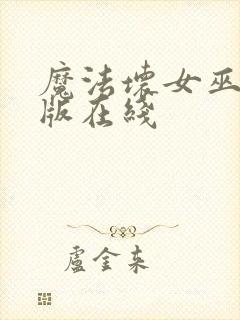 魔法壞女巫
版在綫
盧金来